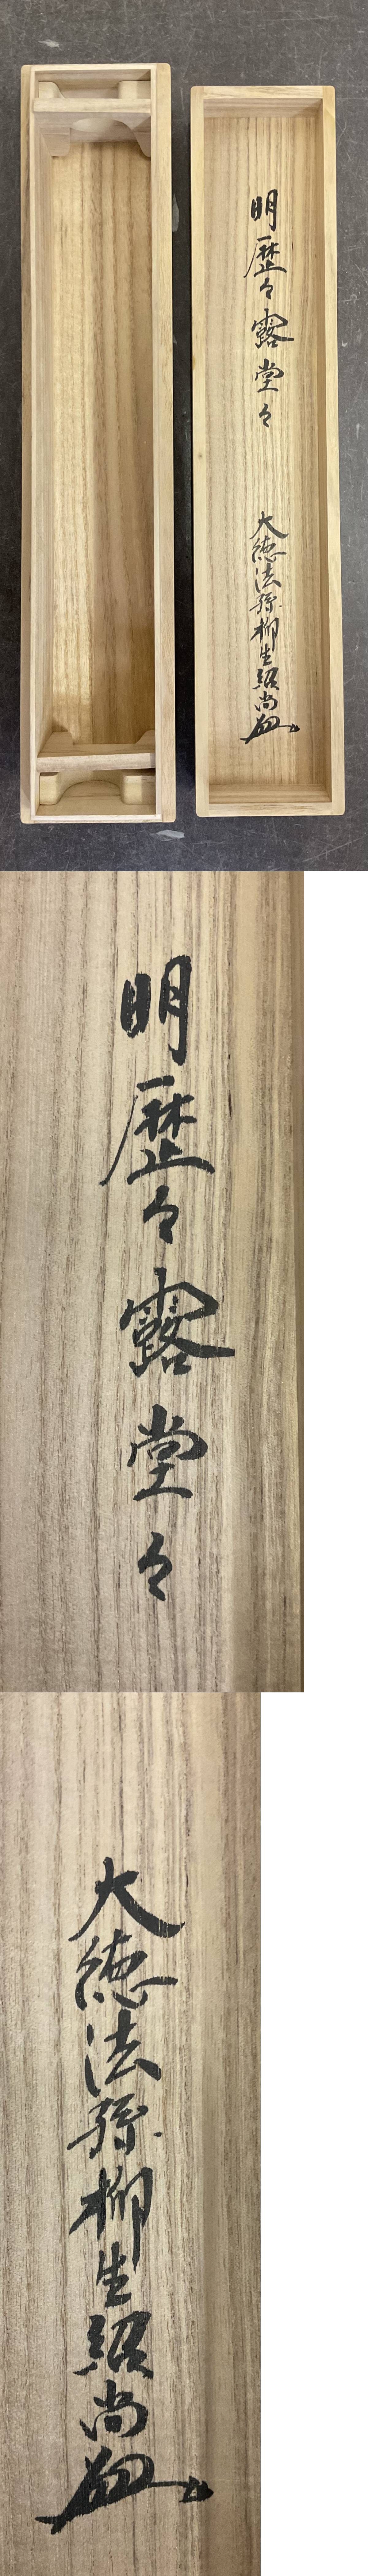 明歴々露堂々
大徳法孫柳生紹尚
明歴々露堂々
大徳法孫柳生紹尚